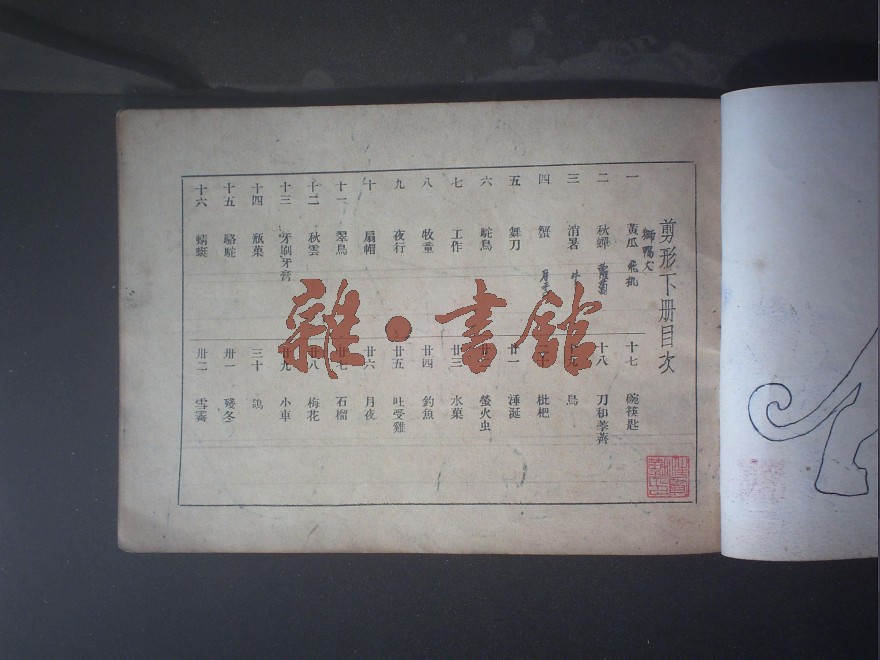 剪形下册目次
獅鴨犬
一 黃瓜 飛机
二 秋蟬
三 消暑 牛
四 蟹
五 舞刀
六 鴕鳥
七 工作
八 牧童
九 夜行
十 扇帽
十一 翠鳥
十二 秋雲
十三 牙刷牙膏
十四 瓶菓
十五 駱駝
十六 蜻蜓
十七 碗筷匙
十八 刀和荸薺
十九 鳥
二十 枇杷
廿一 涶涎
廿二 螢火虫
廿三 水菓
廿四 釣魚
廿五 吐受雞
廿六 月夜
廿七 石榴
廿八 梅花
廿九 小車
三十 鴿
卅一 殘冬
卅二 雪霽
雜·書館